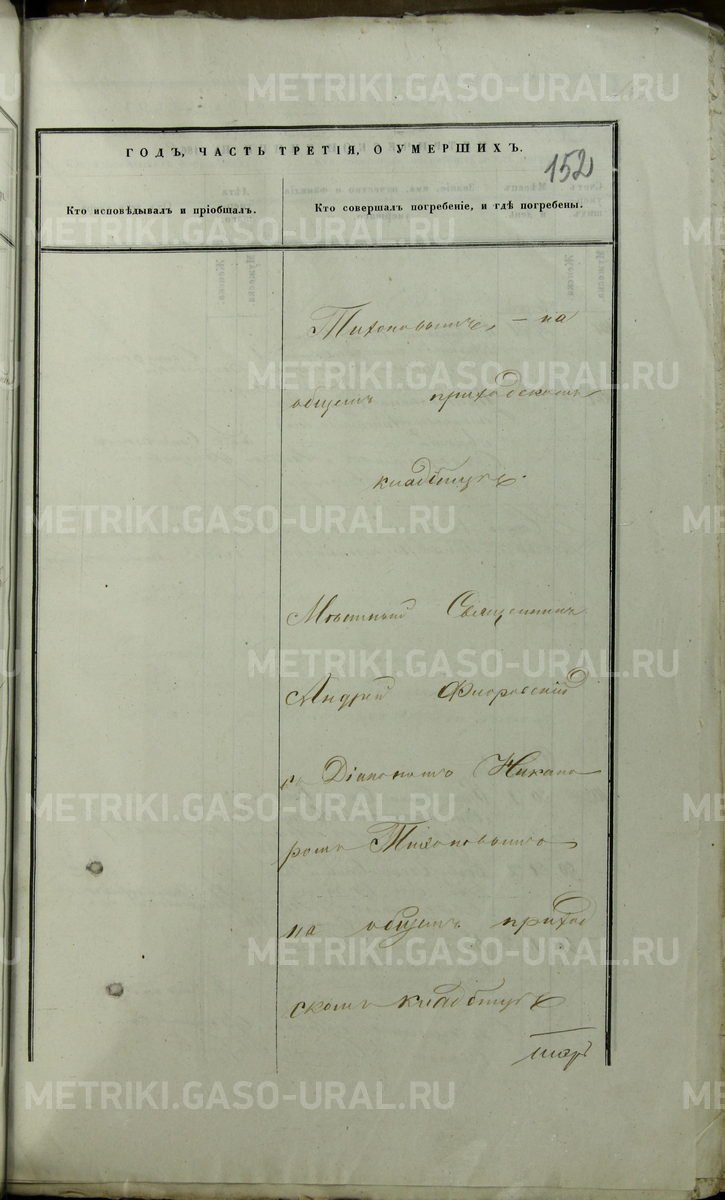 METRIKI.GASO-URAL.RU
ГОДЪ, ЧАСТЬ ТРЕТІЯ, О УМЕРШИХЪ.
152
Кто исповѣдывалъ и пріобщалъ.
Кто совершалъ погребеніе, и гдѣ погребены.
Тихоновымъ, – на
общемъ приходскомъ
кладбищѣ.
Мѣстный Священникъ
Андрей Флоровскій
съ Діакономъ Никано
ромъ Тихоновымъ
на общемъ приход
скомъ кладбищѣ